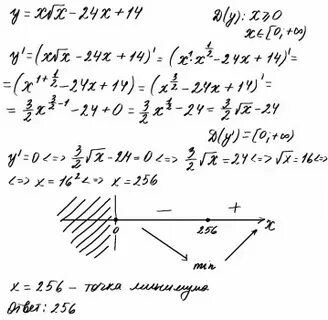 y = x√x − 24x + 14
D(y): x ⩾ 0
x ∈ [0, +∞)
y' = (x√x − 24x + 14)' = (x¹·x^(1/2) − 24x + 14)' =
= (x^(1+1/2) − 24x + 14)' = (x^(3/2) − 24x + 14)' =
= 3/2 x^(3/2 − 1) − 24 + 0 = 3/2 x^(1/2) − 24 = 3/2 √x − 24
D(y') = [0, +∞)
y' = 0 <=> 3/2 √x − 24 = 0 <=> 3/2 √x = 24 <=> √x = 16 <=>
<=> x = 16² <=> x = 256
− +
0 256 x
min
x = 256 – точка минимума
Ответ: 256